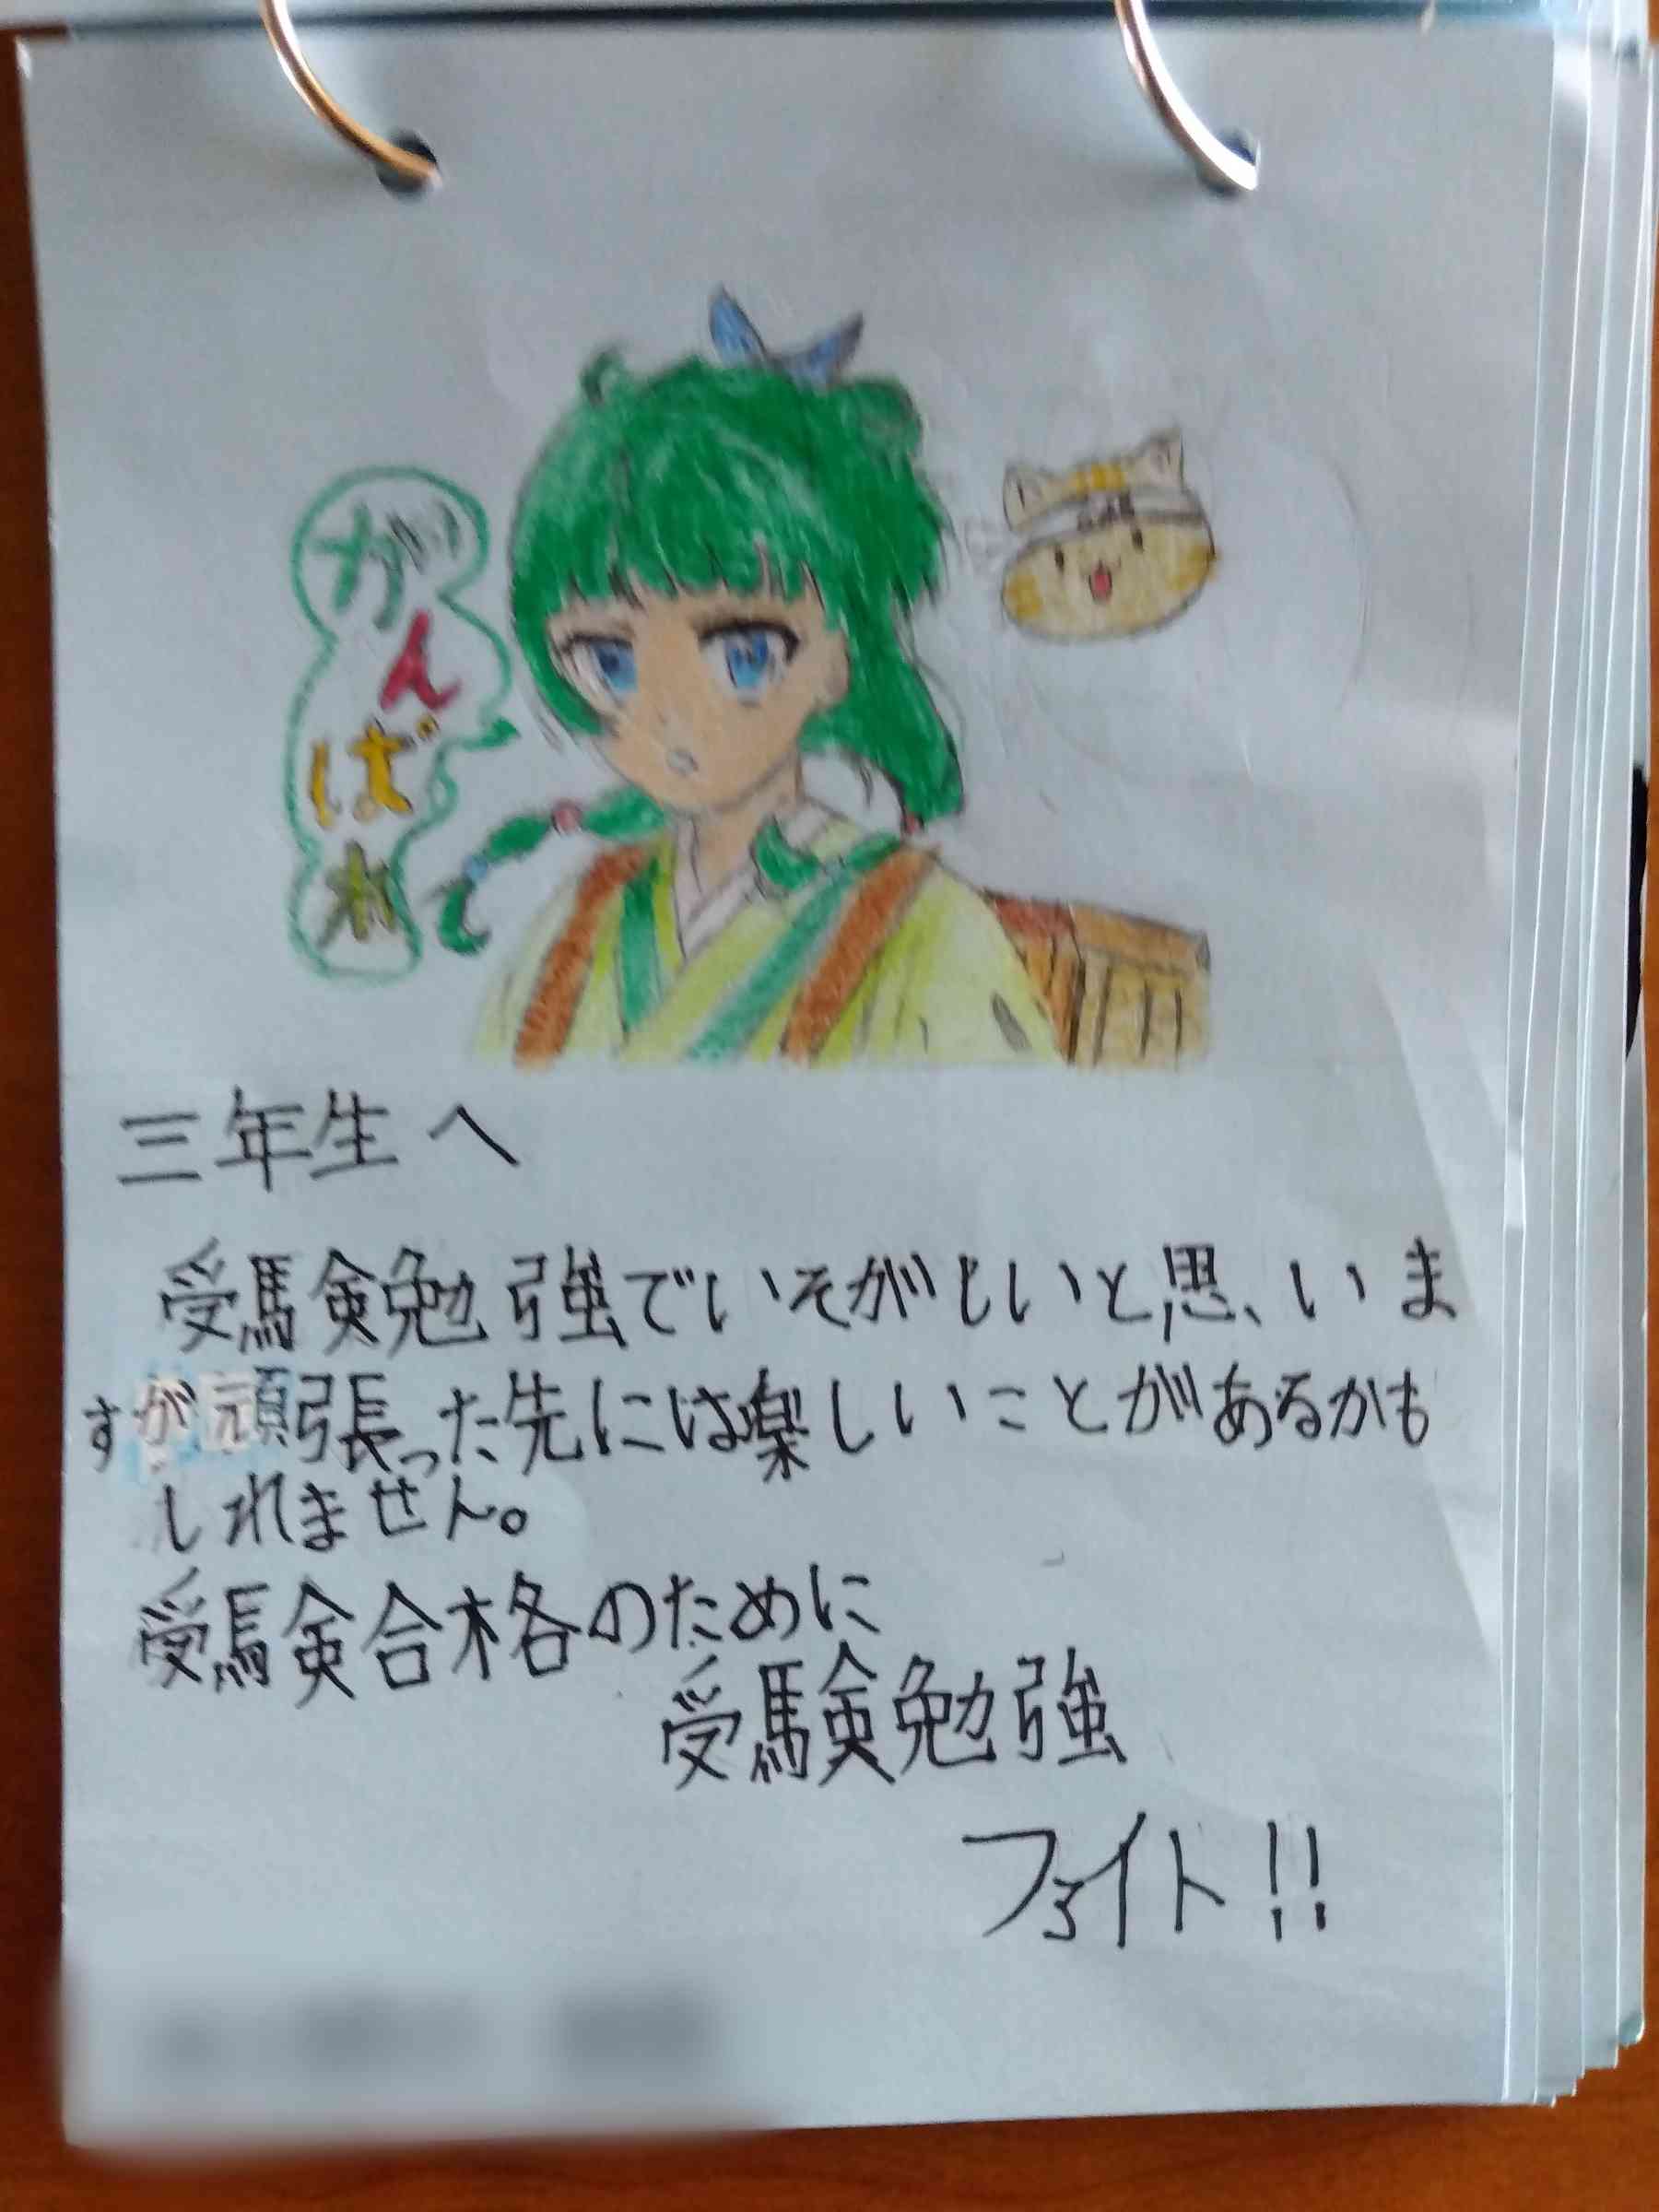 がんばれ
三年生へ
受験勉強でいそがしいと思いま
すが頑張った先には楽しいことがあるかも
しれません。
受験合格のために
受験勉強
ファイト!!